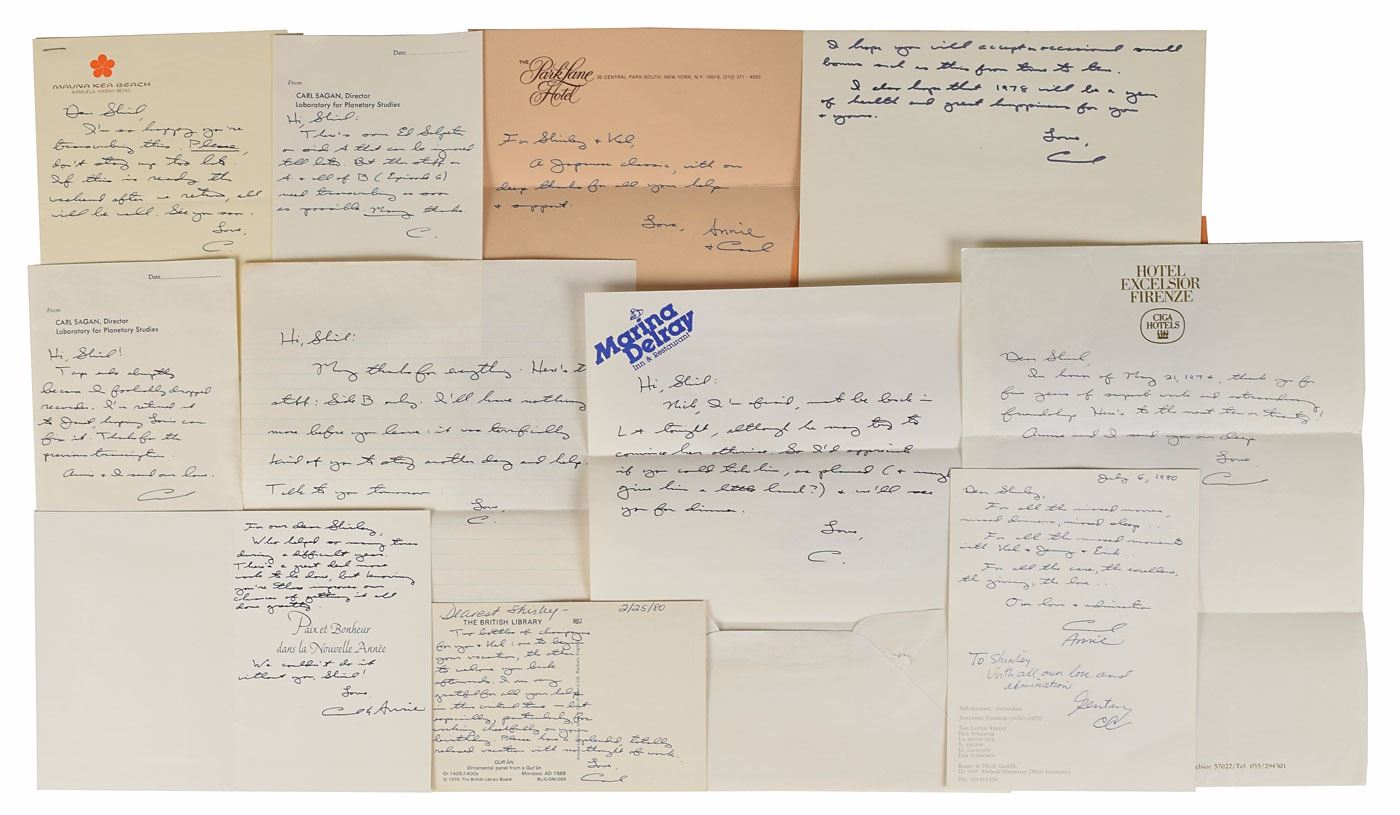 MAUNA KEA BEACH
KAMUELA, HAWAII 96743
Dear Shirl,
I'm so happy you're
transcribing this. Please,
don't stay up too late.
If this is ready the
weekend after we return, all
will be well. See you soon.
Love,
C.
Date
From
CARL SAGAN, Director
Laboratory for Planetary Studies
Hi, Shirl:
There's some Ed Salpeter
on side A that can be ignored
till later. But the stuff on
A & all of B (Episode 6)
need transcribing as soon
as possible. Many thanks.
C.
THE
Park Lane
Hotel
36 CENTRAL PARK SOUTH, NEW YORK, N.Y. 10019 (212) 371-4000
For Shirley & Hal,
A Japanese classic, with our
deep thanks for all your help
& support.
Love, Annie
& Carl
I hope you will accept an occasional small
bonus such as this from time to time.
I also hope that 1978 will be a year
of health and great happiness for you
& yours.
Love,
Carl
Date
From
CARL SAGAN, Director
Laboratory for Planetary Studies
Hi, Shirl!
Tape ends abruptly
because I foolishly dropped
recorder. I'm returned it
to Janet, hoping can
fix it. Thanks for the
previous transcription.
Annie & I send our love.
C
Hi, Shirl:
Many thanks for everything. Here's t
stuff: Side B only. I'll have nothing
more before you leave: it was terrifically
kind of you to stay another day and help.
Talk to you tomorrow.
Love,
C.
Marina
Delray
Inn & Restaurant
Hi, Shirl:
Nick, I'm afraid, must be back in
LA tonight, although he may try to
convince you otherwise. So I'd appreciate
if you could take him, as planned (& maybe
give him a little lunch?) & we'll see
you for dinner.
Love,
C.
HOTEL
EXCELSIOR
FIRENZE
CIGA
HOTELS
Dear Shirl,
In honor of May 21, 1974, thank you for
five years of superb work and extraordinary
friendship. Here's to the next ten or twenty!
Annie and I send you our deep
Love.
C
For our dear Shirley,
Who helped so many times
during a difficult year.
There's a great deal more
work to be done, but knowing
you're there improves our
chances of getting it all
done greatly.
Paix et Bonheur
dans la Nouvelle Année
We couldn't do it
without you, Shirl!
Love,
Carl & Annie
Dearest Shirley – 2/25/80
THE BRITISH LIBRARY
Two bottles of champagne
for you & Hal: one to begin
your vacation, the other
to welcome you back
afterwards. I am very
grateful for all your help
in this critical time — but
especially, particularly for
working cheerfully on your
birthday. Please have a splendid, totally
relaxed vacation with no thought of work.
Love,
Carl
QUR'ĀN
Ornamental panel from a Qur'ān
Or.1405,f.400a Morocco, AD 1568
© 1979, The British Library Board BL/C/OM/093
July 6, 1980
Dear Shirley,
For all the missed movies,
missed dinners, missed sleep . . .
For all the missed moments
with Hal & Jenny & Erik . .
For all the care, the excellence,
the giving, the love . . .
Our love & admiration
Carl
Annie
To Shirley
With all our love and
admiration
Gentry
Rijksmuseum, Amsterdam
Johannes Vermeer (1632–1675)
THE LITTLE STREET
HET STRAATJE
LA PETITE RUE
D-3167 Altdorf/Hannover (West Germany)
celsior 57022/Tel. 055/294301